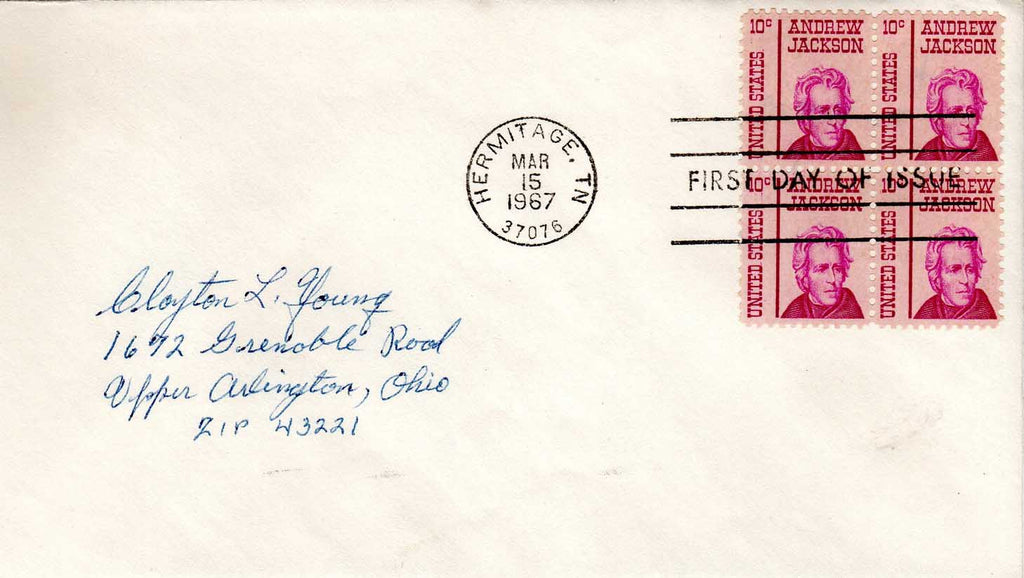 10c ANDREW JACKSON
UNITED STATES
10c ANDREW JACKSON
UNITED STATES
HERMITAGE, TN
MAR
15
1967
37076
FIRST DAY OF ISSUE
10c ANDREW JACKSON
UNITED STATES
10c ANDREW JACKSON
UNITED STATES
Clayton L. Young
1672 Grenoble Road
Upper Arlington, Ohio
ZIP 43221